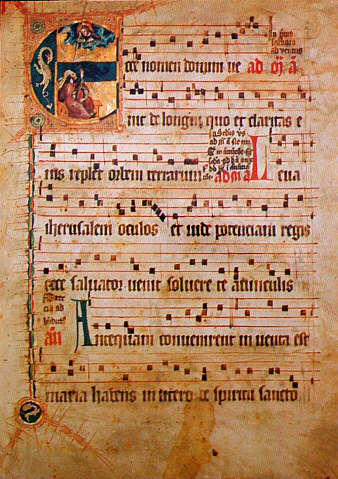 Ecce nomen domini ve
nit de longinquo et claritas e
ius replet orbem terrarum Leua
iherusalem oculos et uide potenciam regis
ecce saluator uenit soluere te a uinculis
an Antequam conuenirent inuenta est
maria habens in utero de spiritu sancto